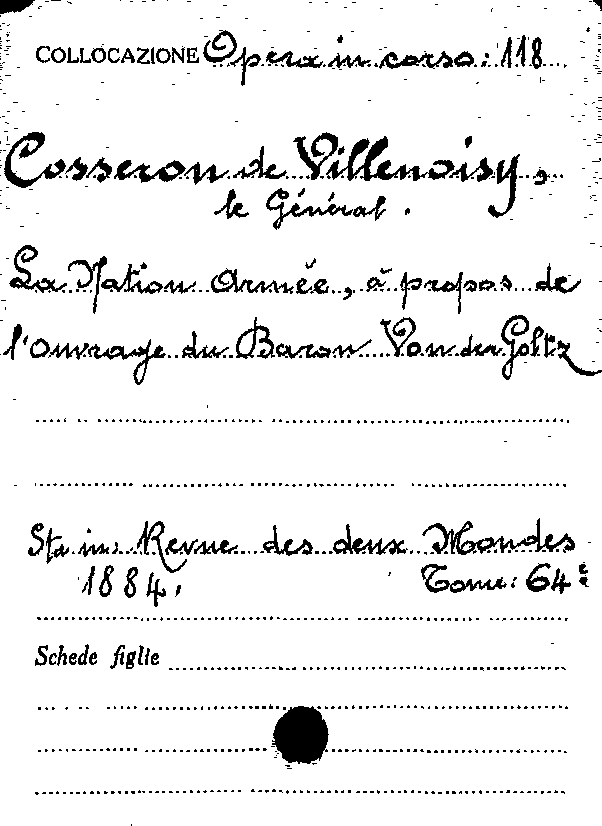 COLLOCAZIONE Opera in corso: 118
Cosseron de Villenoisy,
le Général.
La Nation Armée, à propos de
l'Ouvrage du Baron Von der Goltz
Sta in: Revue des deux Mondes
1884. Tome: 64e
Schede figlie